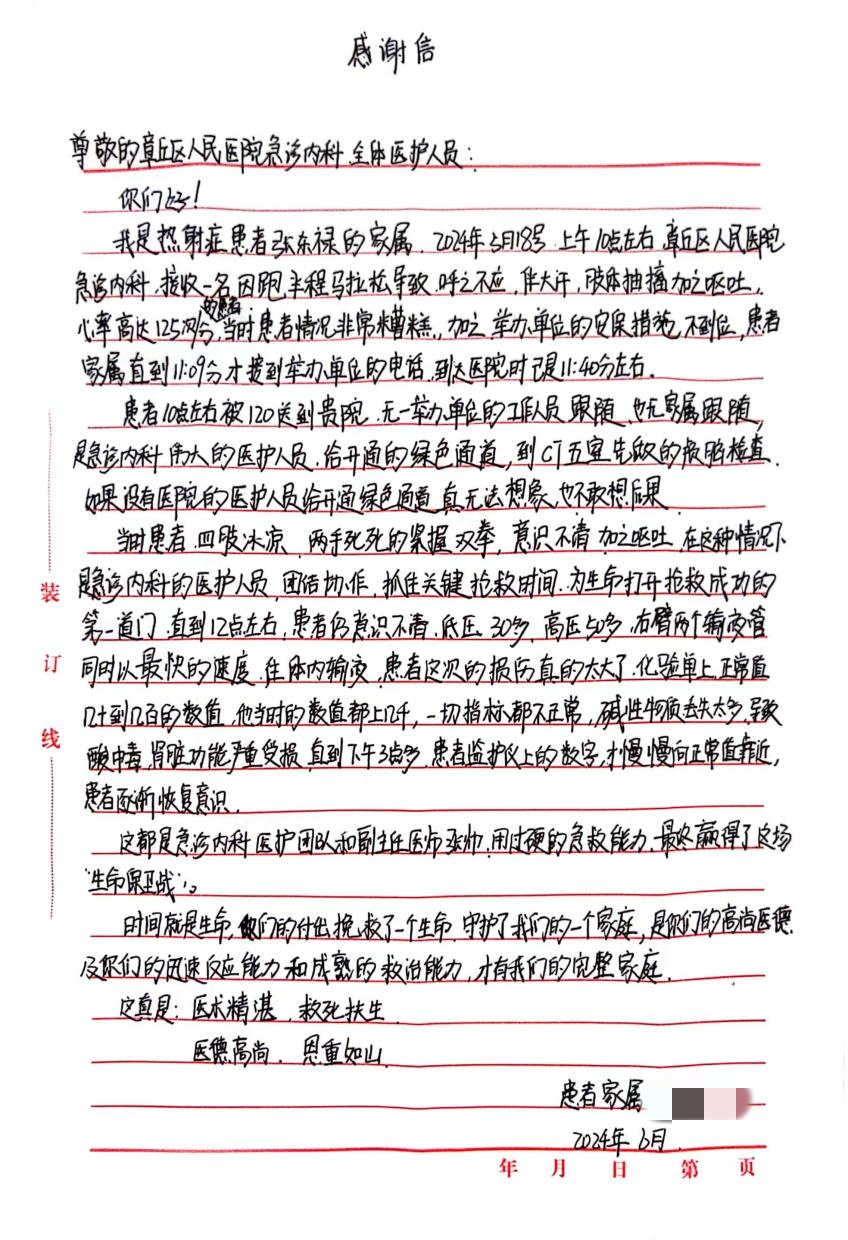 感谢信
尊敬的章丘区人民医院急诊内科全体医护人员:
你们好!
我是热射症患者张东禄的家属. 2024年3月18号 上午10点左右 章丘区人民医院
急诊内科, 接收一名因跑半程马拉松导致. 呼之不应, 伴大汗, 肢体抽搐 加之呕吐,
心率高达125次/分的患者, 当时患者情况非常糟糕, 加之 举办单位的安保措施 不到位, 患者
家属直到11:09分才接到举办单位的电话. 到达医院时已是11:40分左右.
患者10点左右被120送到贵院. 无一举办单位的工作人员 跟随, 也无家属跟随,
是急诊内科 伟大的医护人员. 给开通的绿色通道, 到CT五室先做的散脑检查.
如果没有医院的医护人员给开通绿色通道 真无法想象, 也不敢想后果.
当时患者 四肢冰凉 两手死死的紧握双拳, 意识不清 加之呕吐. 在这种情况下
是急诊内科的医护人员, 团结协作, 抓住关键 抢救时间. 为生命打开抢救成功的
第一道门. 直到12点左右, 患者仍意识不清. 低压 30多, 高压50多. 右臂两个输液管
同时以最快的速度. 往体内输液, 患者这次的损伤真的太大了. 化验单上正常值
几十到几百的数值, 他当时的数值都上几千, 一切指标都不正常, 碱性物质丢失太多. 导致
酸中毒, 肾脏功能严重受损. 直到下午3点多. 患者监护仪上的数字, 才慢慢向正常值靠近,
患者逐渐恢复意识.
这都是急诊内科医护团队和副主任医师张帅. 用过硬的急救能力, 最终赢得了这场
"生命保卫战"。
时间就是生命, 你们的付出 挽救了一个生命. 守护了我们的一个家庭, 是你们的高尚医德
及你们的迅速反应能力和成熟的救治能力, 才有我们的完整家庭.
这真是: 医术精湛. 救死扶生.
医德高尚. 恩重如山.
患者家属
2024年3月.
年 月 日 第 页
装
订
线